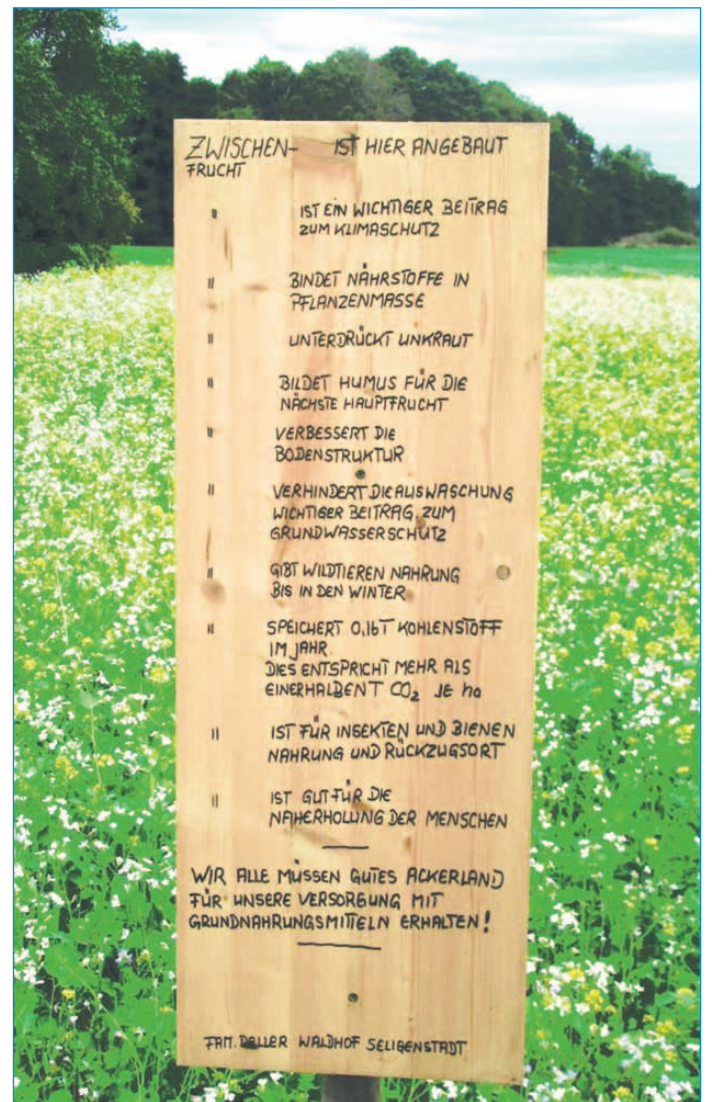 ZWISCHEN- IST HIER ANGEBAUT
FRUCHT
" IST EIN WICHTIGER BEITRAG
ZUM KLIMASCHUTZ
" BINDET NÄHRSTOFFE IN
PFLANZENMASSE
" UNTERDRÜCKT UNKRAUT
" BILDET HUMUS FÜR DIE
NÄCHSTE HAUPTFRUCHT
" VERBESSERT DIE
BODENSTRUKTUR
" VERHINDERT DIE AUSWASCHUNG
WICHTIGER BEITRAG ZUM
GRUNDWASSERSCHUTZ
" GIBT WILDTIEREN NAHRUNG
BIS IN DEN WINTER
" SPEICHERT 0,16T KOHLENSTOFF
IM JAHR
DIES ENTSPRICHT MEHR ALS
EINERHALBENT CO₂ JE ha
" IST FÜR INSEKTEN UND BIENEN
NAHRUNG UND RÜCKZUGSORT
" IST GUT FÜR DIE
NAHERHOLUNG DER MENSCHEN
WIR ALLE MÜSSEN GUTES ACKERLAND
FÜR UNSERE VERSORGUNG MIT
GRUNDNAHRUNGSMITTELN ERHALTEN!
FAM. WALDHOF SELIGENSTADT